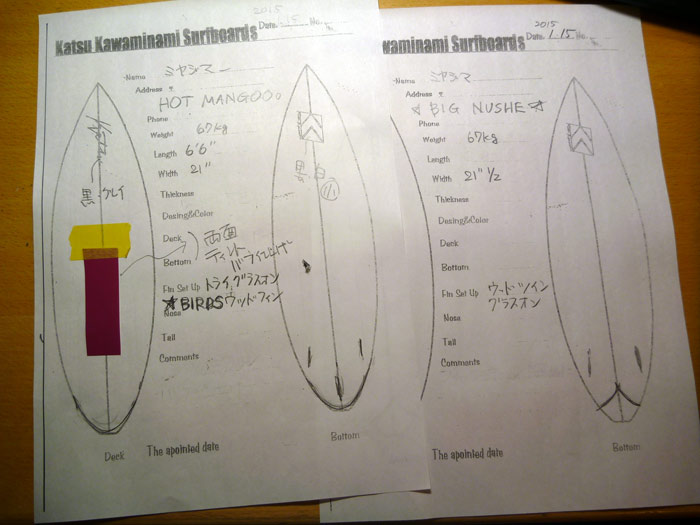 2015
Katsu Kawaminami Surfboards
Date. 15 No.
Name ミヤジマ
Address 〒
HOT MANGOO
Phone
Weight 67kg
Length 6'6"
Width 21"
Thickness
Desing&Color
Deck 両面
ティント
Bottom バフ仕上げ
Fin Set Up トライ,グラスオン
☆BIRDSウッドフィン
Nose
Tail
Comments
The apointed date
黒 グレイ
黒 白
Deck
Bottom
2015
waminami Surfboards
Date. 1.15 No.
Name ミヤジマ
Address 〒
☆ BIG NUSHE ☆
Phone
Weight 67kg
Length
Width 21" 1/2
Thickness
Desing&Color
Deck
Bottom
Fin Set Up ウッドツイン
グラスオン
Nose
Tail
Comments
The apointed date
Bottom